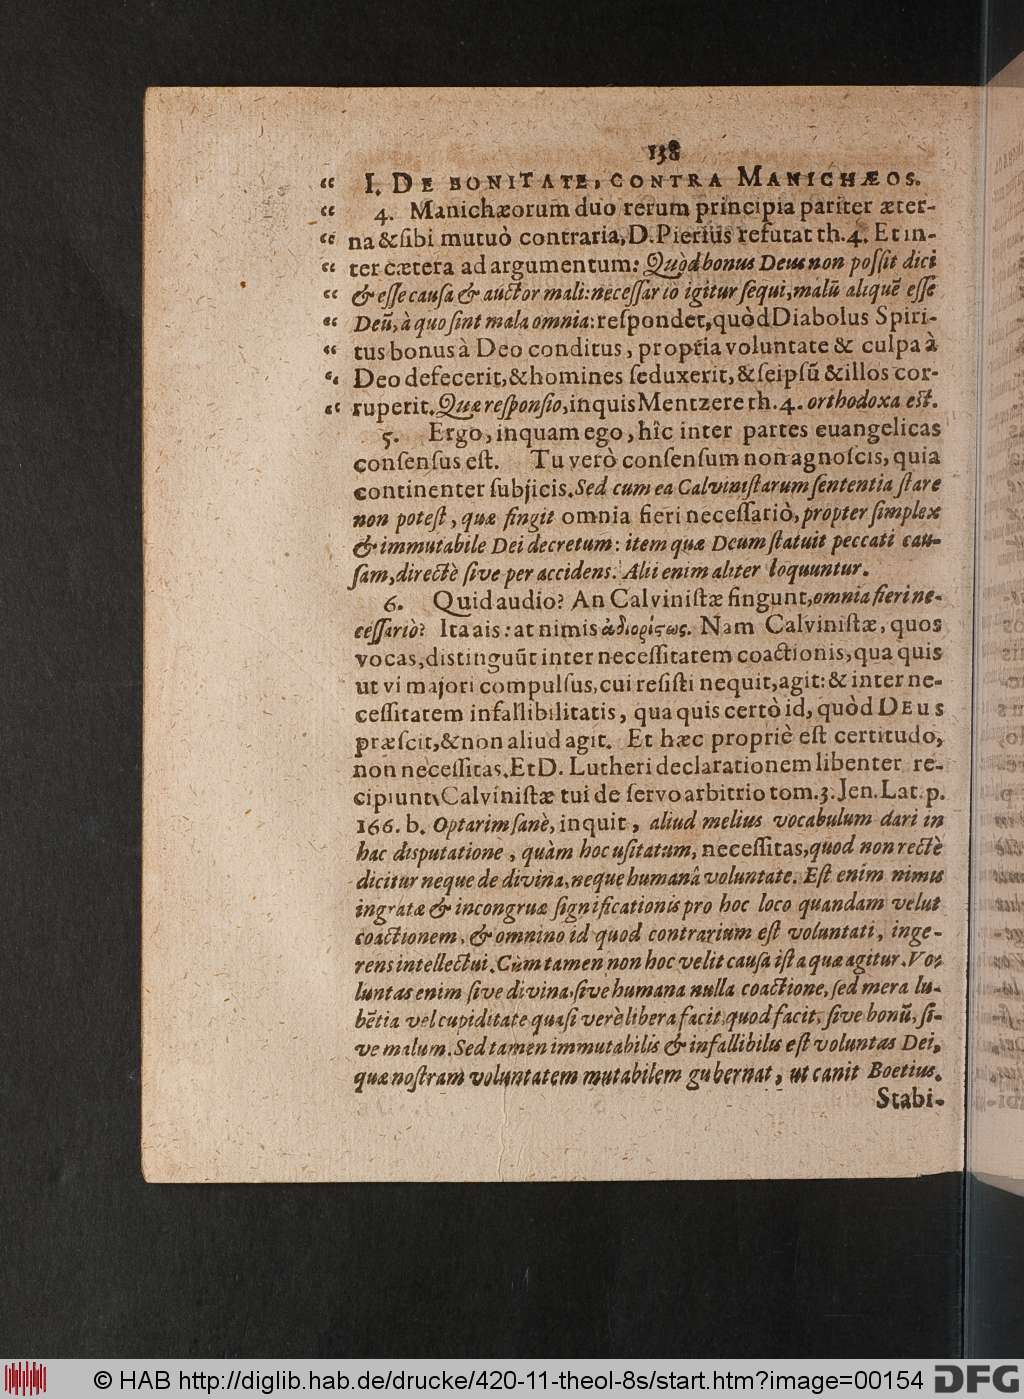 138
“ I. DE BONITATE, CONTRA MANICHÆOS.
“ 4. Manichæorum duo rerum principia pariter æter-
“ na & ſibi mutuò contraria, D. Pierius refutat th. 4. Et in-
“ ter cætera ad argumentum: Quòd bonus Deus non poſſit dici
“ & eſſe cauſa & auctor mali: neceſſario igitur ſequi, malũ aliquẽ eſſe
“ Deũ, à quo ſint mala omnia: reſpondet, quòd Diabolus Spiri-
“ tus bonus à Deo conditus, propria voluntate & culpa à
“ Deo defecerit, & homines ſeduxerit, & ſeipſũ & illos cor-
“ ruperit. Quæ reſponſio, inquis Mentzere th. 4. orthodoxa eſt.
5. Ergo, inquam ego, hîc inter partes euangelicas
conſenſus eſt. Tu verò conſenſum non agnoſcis, quia
continenter ſubjicis. Sed cum ea Calviniſtarum ſententia ſtare
non poteſt, quæ fingit omnia fieri neceſſariò, propter ſimplex
& immutabile Dei decretum: item quæ Deum ſtatuit peccati cau-
ſam, directè ſive per accidens. Alii enim aliter loquuntur.
6. Quid audio? An Calviniſtæ fingunt, omnia fieri ne-
ceſſariò? Ita ais: at nimis ἀδιορίςως. Nam Calviniſtæ, quos
vocas, diſtinguũt inter neceſſitatem coactionis, qua quis
ut vi majori compulſus, cui reſiſti nequit, agit: & inter ne-
ceſſitatem infallibilitatis, qua quis certò id, quòd DEUS
præſcit, & non aliud agit. Et hæc propriè eſt certitudo,
non neceſſitas. Et D. Lutheri declarationem libenter re-
cipiunt Calviniſtæ tui de ſervo arbitrio tom. 3. Jen. Lat. p.
166. b. Optarim ſanè, inquit, aliud melius vocabulum dari in
hac diſputatione, quàm hoc uſitatum, neceſſitas, quod non rectè
dicitur neque de divina, neque humanâ voluntate. Eſt enim nimis
ingratæ & incongruæ ſignificationis pro hoc loco quandam velut
coactionem, & omnino id quod contrarium eſt voluntati, inge-
rens intellectui. Cùm tamen non hoc velit cauſa iſta quæ agitur. Vo-
luntas enim ſive divina, ſive humana nulla coactione, ſed mera lu-
bẽtia vel cupiditate quaſi verè libera facit, quod facit, ſive bonũ, ſi-
ve malum. Sed tamen immutabilis & infallibilis eſt voluntas Dei,
quæ noſtram voluntatem mutabilem gubernat, ut canit Boetius.
Stabi-
© HAB http://diglib.hab.de/drucke/420-11-theol-8s/start.htm?image=00154
DFG